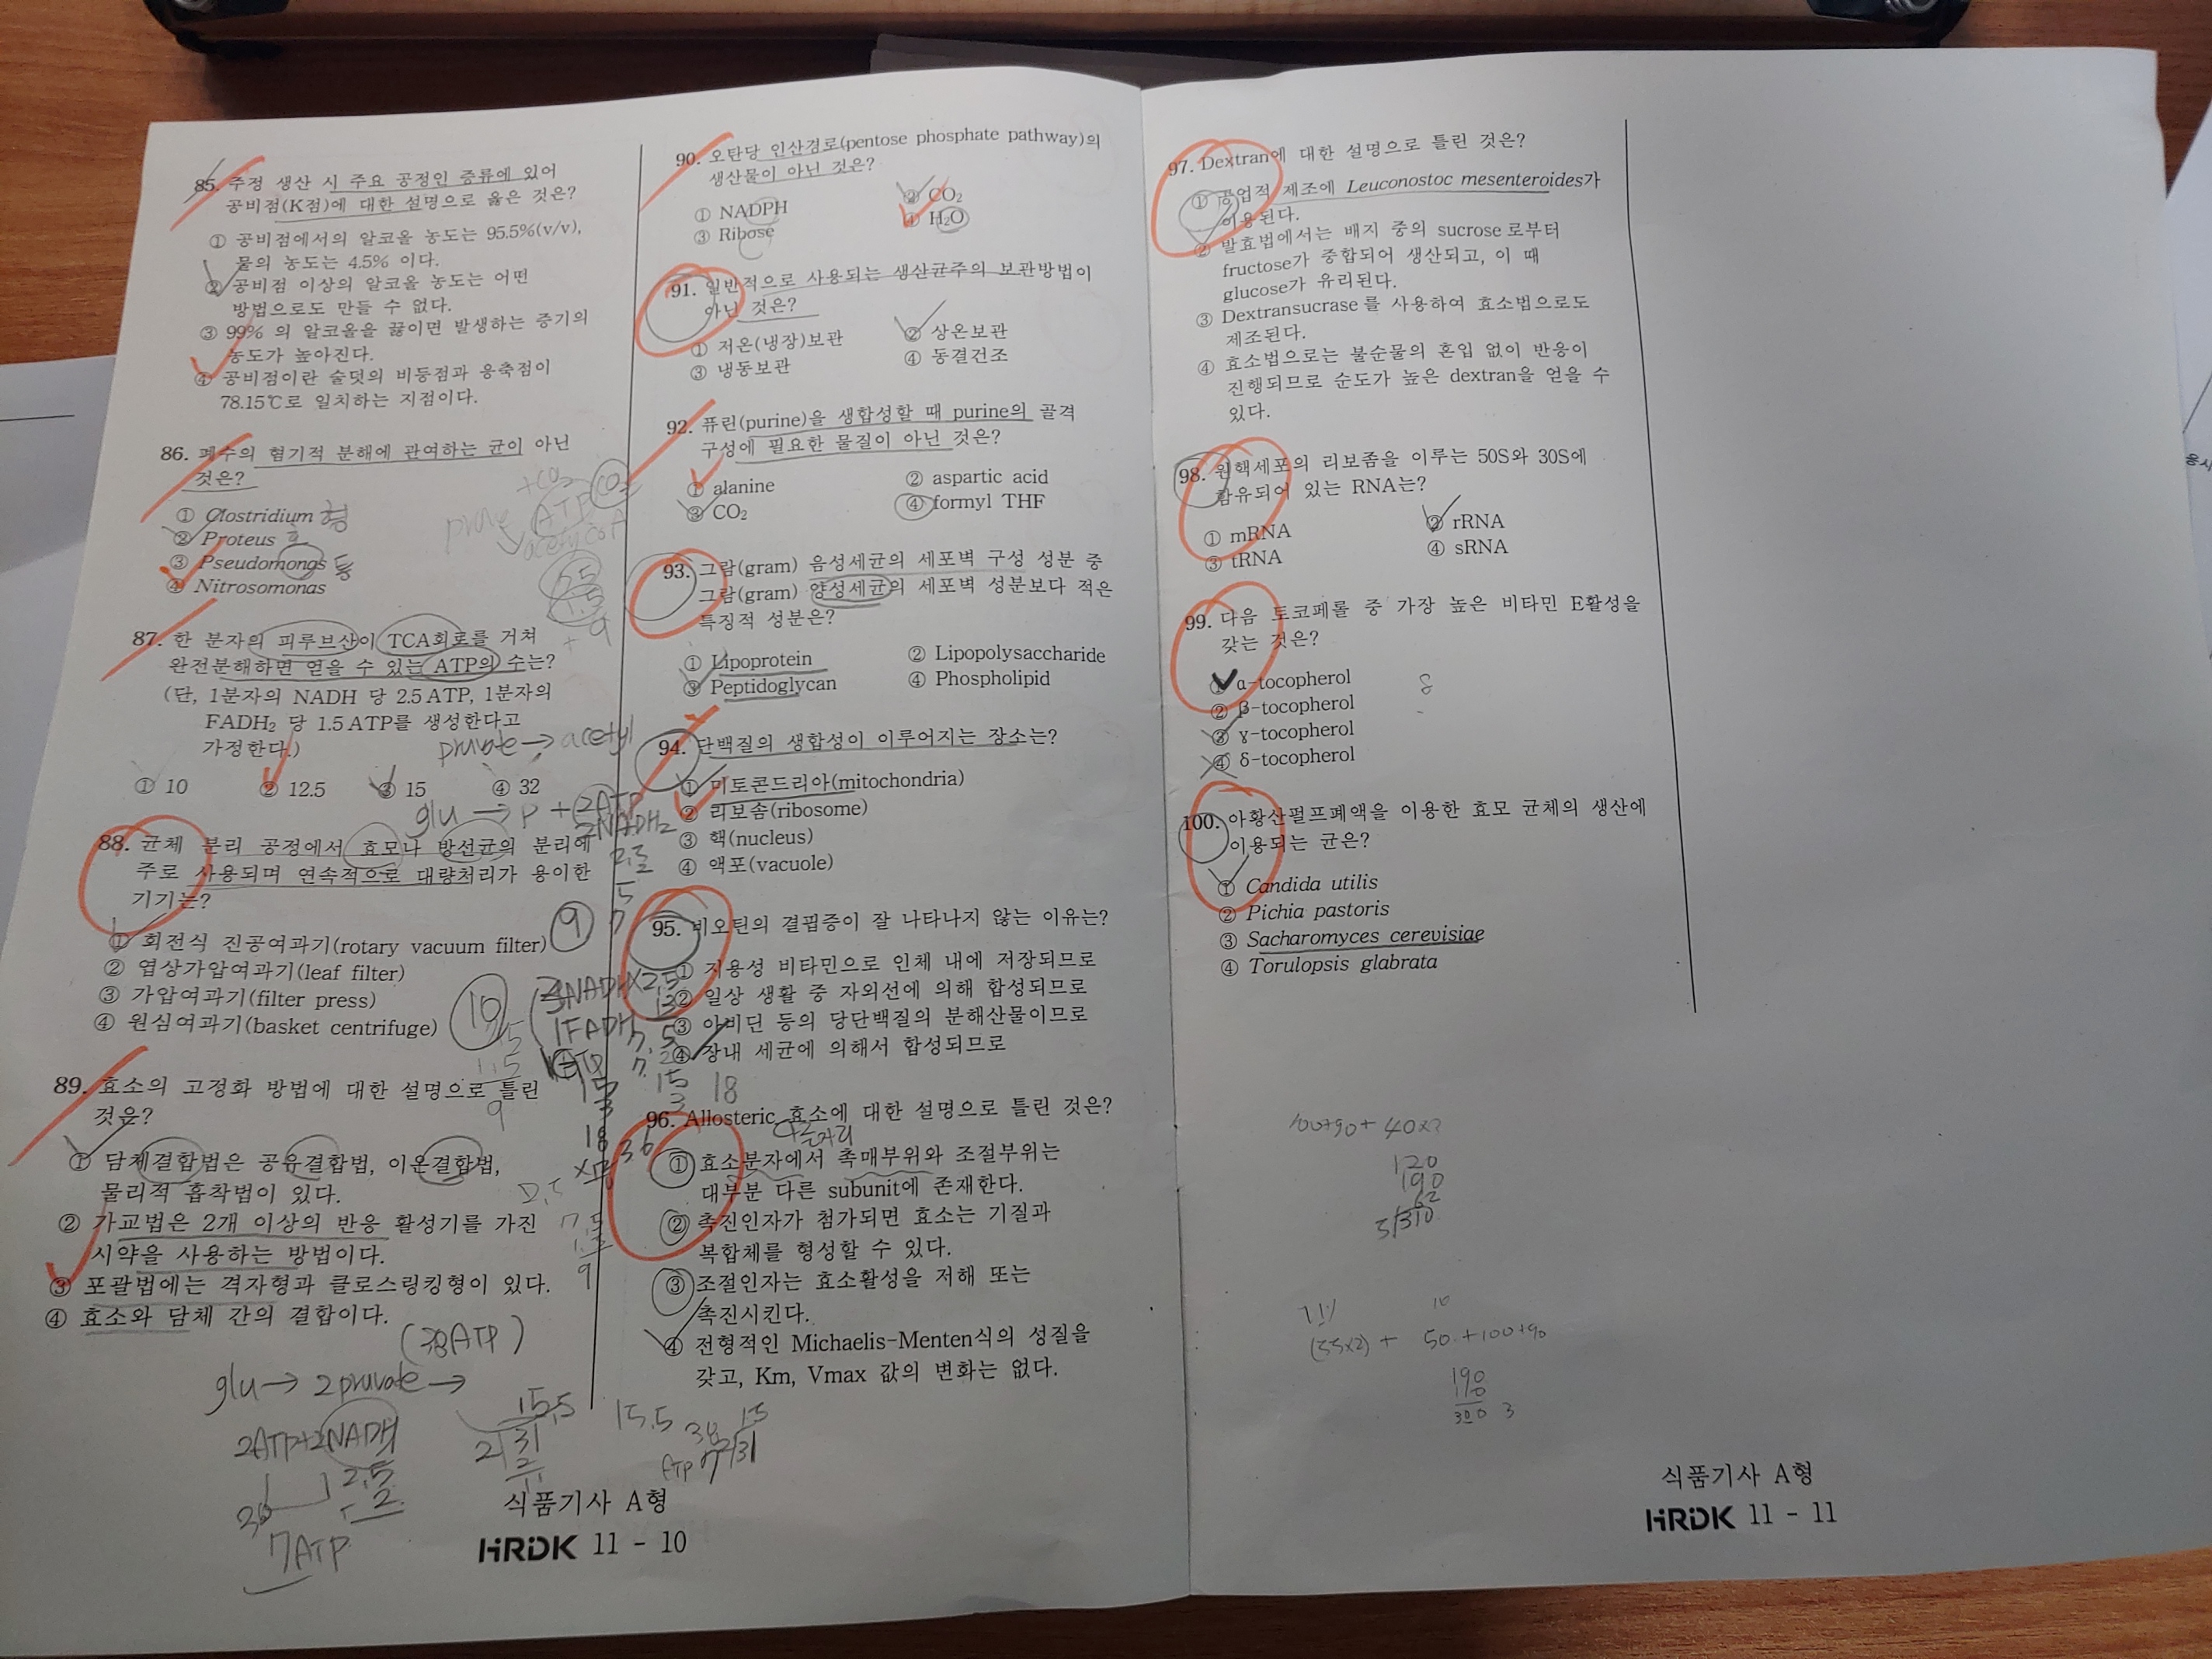 85. 주정 생산 시 주요 공정인 증류에 있어
공비점(K점)에 대한 설명으로 옳은 것은?
① 공비점에서의 알코올 농도는 95.5%(v/v),
물의 농도는 4.5% 이다.
② 공비점 이상의 알코올 농도는 어떤
방법으로도 만들 수 없다.
③ 99% 의 알코올을 끓이면 발생하는 증기의
농도가 높아진다.
④ 공비점이란 술덧의 비등점과 응축점이
78.15℃로 일치하는 지점이다.
86. 폐수의 혐기적 분해에 관여하는 균이 아닌
것은?
① Clostridium 혐
② Proteus
③ Pseudomonas 통
④ Nitrosomonas
+CO₂
CO₂
ATP
acetyl CoA
2.5
1.5
+ 9
87. 한 분자의 피루브산이 TCA회로를 거쳐
완전분해하면 얻을 수 있는 ATP의 수는?
(단, 1분자의 NADH 당 2.5 ATP, 1분자의
FADH₂ 당 1.5 ATP를 생성한다고
가정한다.)
pruvate → acetyl
① 10 ② 12.5 ③ 15 ④ 32
glu → p + 2ATP
2NADH₂
88. 균체 분리 공정에서 효모나 방선균의 분리에
주로 사용되며 연속적으로 대량처리가 용이한
기기는?
① 회전식 진공여과기(rotary vacuum filter)
② 엽상가압여과기(leaf filter)
③ 가압여과기(filter press)
④ 원심여과기(basket centrifuge)
9
10
3NADH×2.5
1FADH
ATP
89. 효소의 고정화 방법에 대한 설명으로 틀린
것은?
① 담체결합법은 공유결합법, 이온결합법,
물리적 흡착법이 있다.
② 가교법은 2개 이상의 반응 활성기를 가진
시약을 사용하는 방법이다.
③ 포괄법에는 격자형과 클로스링킹형이 있다.
④ 효소와 담체 간의 결합이다.
glu → 2pruvate →
2ATP+2NADH
2.5
7ATP
15.5
2 31
15.5
90. 오탄당 인산경로(pentose phosphate pathway)의
생산물이 아닌 것은?
① NADPH ② CO₂
③ Ribose ④ H₂O
91. 일반적으로 사용되는 생산균주의 보관방법이
아닌 것은?
① 저온(냉장)보관 ② 상온보관
③ 냉동보관 ④ 동결건조
92. 퓨린(purine)을 생합성할 때 purine의 골격
구성에 필요한 물질이 아닌 것은?
① alanine ② aspartic acid
③ CO₂ ④ formyl THF
93. 그람(gram) 음성세균의 세포벽 구성 성분 중
그람(gram) 양성세균의 세포벽 성분보다 적은
특징적 성분은?
① Lipoprotein ② Lipopolysaccharide
③ Peptidoglycan ④ Phospholipid
94. 단백질의 생합성이 이루어지는 장소는?
① 미토콘드리아(mitochondria)
② 리보솜(ribosome)
③ 핵(nucleus)
④ 액포(vacuole)
95. 비오틴의 결핍증이 잘 나타나지 않는 이유는?
① 지용성 비타민으로 인체 내에 저장되므로
② 일상 생활 중 자외선에 의해 합성되므로
③ 아비딘 등의 당단백질의 분해산물이므로
④ 장내 세균에 의해서 합성되므로
15 18
96. Allosteric 효소에 대한 설명으로 틀린 것은?
① 효소분자에서 촉매부위와 조절부위는
대부분 다른 subunit에 존재한다.
② 촉진인자가 첨가되면 효소는 기질과
복합체를 형성할 수 있다.
③ 조절인자는 효소활성을 저해 또는
촉진시킨다.
④ 전형적인 Michaelis-Menten식의 성질을
갖고, Km, Vmax 값의 변화는 없다.
식품기사 A형
HRDK 11 - 10
97. Dextran에 대한 설명으로 틀린 것은?
① 공업적 제조에 Leuconostoc mesenteroides가
이용된다.
② 발효법에서는 배지 중의 sucrose로부터
fructose가 중합되어 생산되고, 이 때
glucose가 유리된다.
③ Dextransucrase를 사용하여 효소법으로도
제조된다.
④ 효소법으로는 불순물의 혼입 없이 반응이
진행되므로 순도가 높은 dextran을 얻을 수
있다.
98. 원핵세포의 리보좀을 이루는 50S와 30S에
함유되어 있는 RNA는?
① mRNA ② rRNA
③ tRNA ④ sRNA
99. 다음 토코페롤 중 가장 높은 비타민 E활성을
갖는 것은?
① α-tocopherol
② β-tocopherol
③ γ-tocopherol
④ δ-tocopherol
100. 아황산펄프폐액을 이용한 효모 균체의 생산에
이용되는 균은?
① Candida utilis
② Pichia pastoris
③ Sacharomyces cerevisiae
④ Torulopsis glabrata
120
190
62
5 310
(55×2) + 50 + 100+90
190
110
300 3
식품기사 A형
HRDK 11 - 11